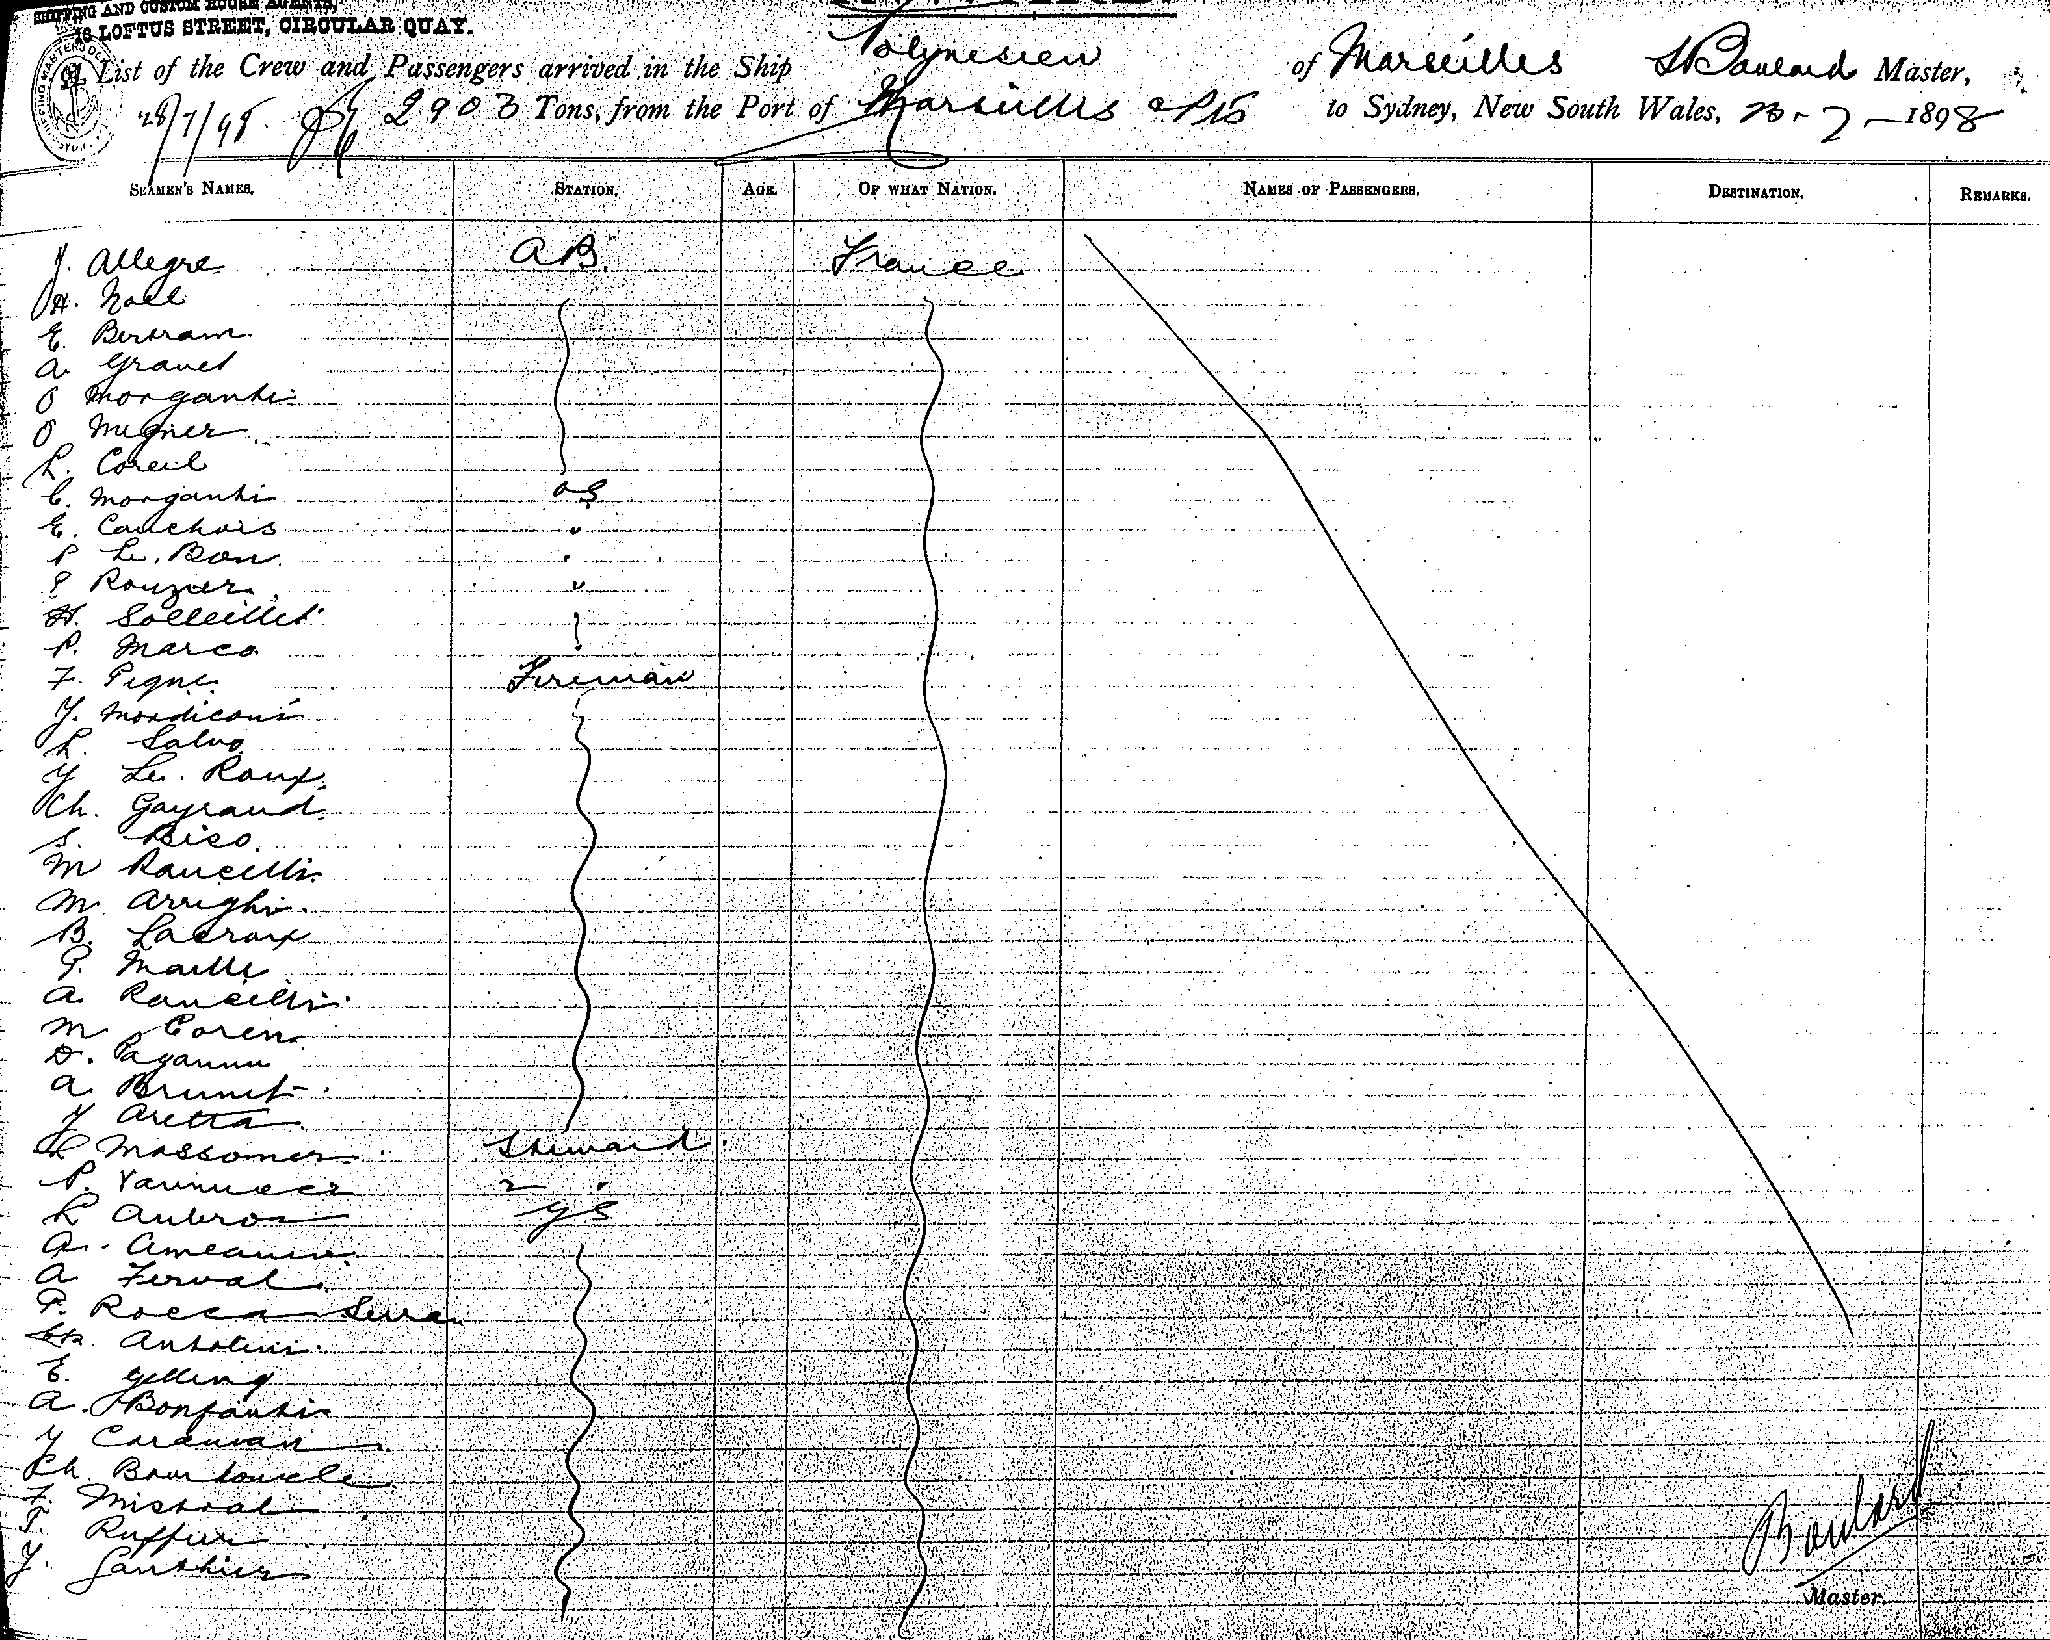 SHIPPING AND CUSTOM HOUSE AGENTS,
16 LOFTUS STREET, CIRCULAR QUAY.
A List of the Crew and Passengers arrived in the Ship Polynesien of Marseilles Boulard Master,
28/7/98 2903 Tons, from the Port of Marseilles to Sydney, New South Wales, 28-7-1898
SEAMEN'S NAMES. STATION. AGE. OF WHAT NATION. NAMES OF PASSENGERS. DESTINATION. REMARKS.
J. Allegre A.B. France
H. Noel
E. Bertram
A. Gravet
O Morganti
O Megner
L. Coreil
C. Morganti OS
E. Cauchois "
P Le. Bon "
P Rouzier "
H. Solleillet
P. Marco
F. Pigne Fireman
J. Mordiconi
L. Salvo
J Le. Roux
Ch. Gayraud
S. Biso.
M Rancelli
M. Arrighi
B. Lacroix
P. Maille
A. Rancilli
M Coren
D. Paganu
A Brunet
J Aretta
L Massomer Steward
P. 2 "
L Aubron GS
A.
A Ferval
P. Rocca Serra
Antolini
E. Gelling
A. Bonfanti
J Caravan
Ch.
F. Mistral
T. Ruffier
J. Gauthier
Boulard
Master.